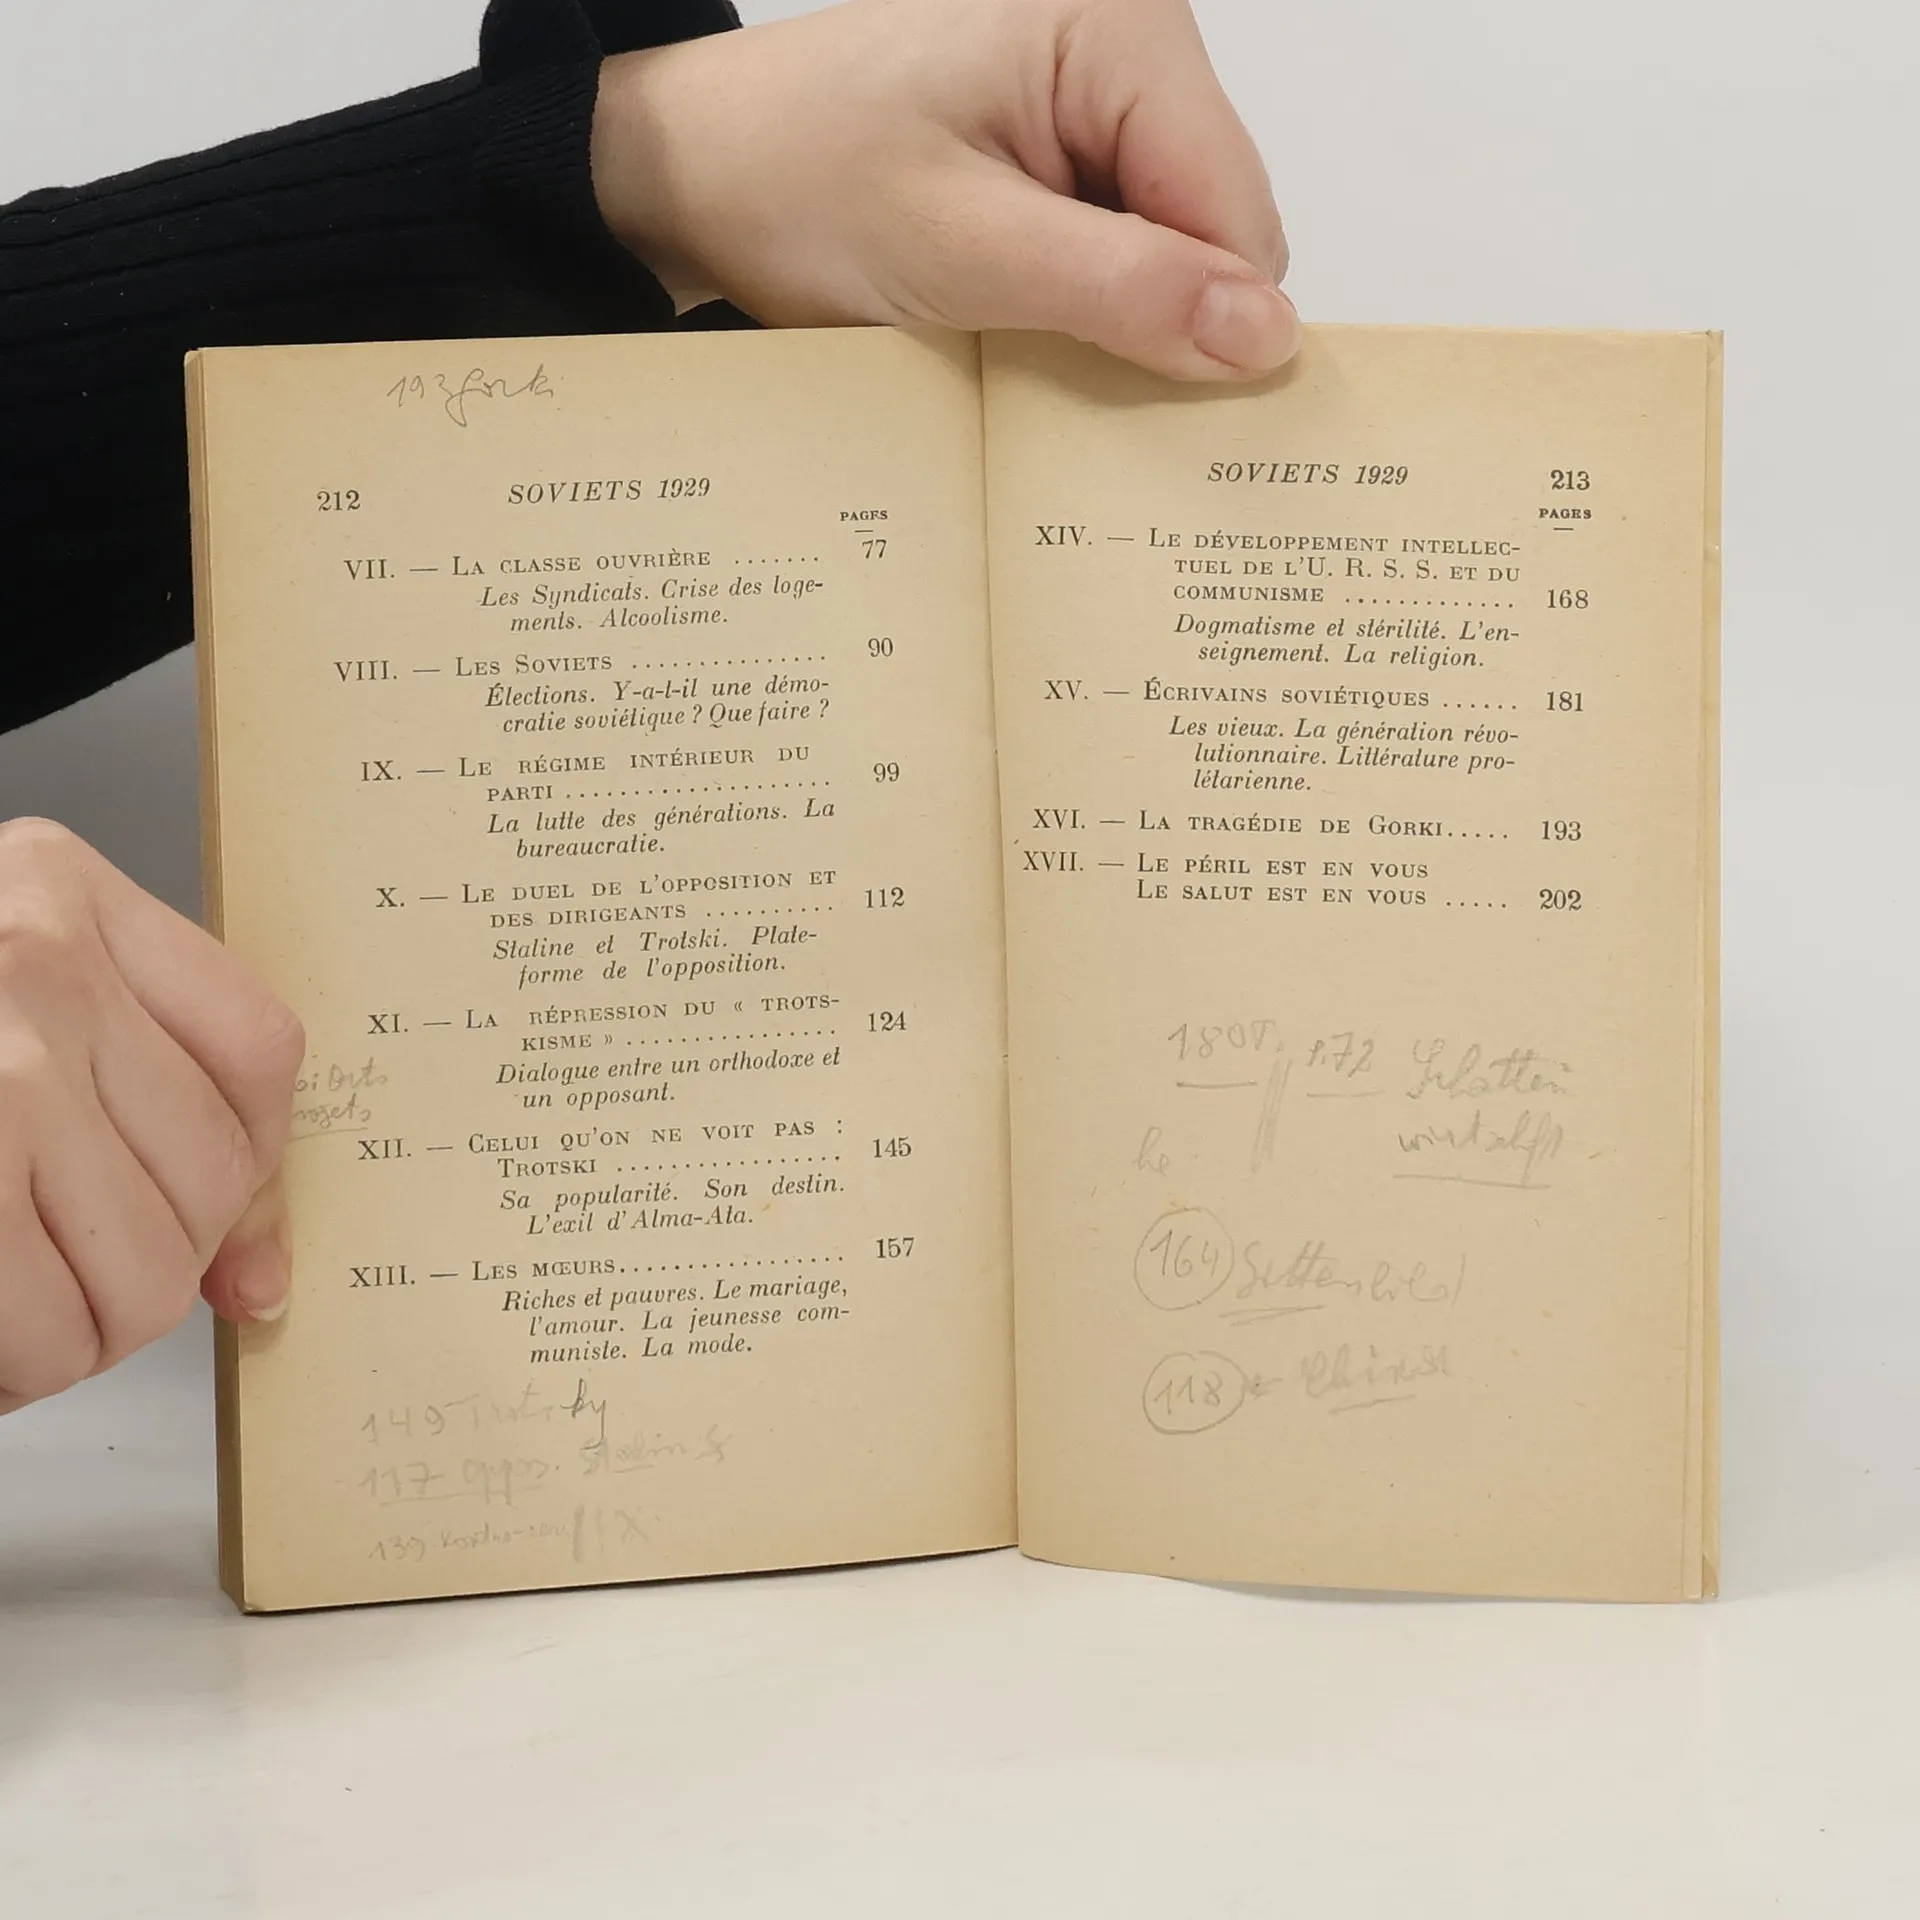 193 Gorki
212 SOVIETS 1929
PAGES
VII. — LA CLASSE OUVRIÈRE ....... 77
Les Syndicats. Crise des loge-
ments. Alcoolisme.
VIII. — LES SOVIETS ............... 90
Élections. Y-a-t-il une démo-
cratie soviétique ? Que faire ?
IX. — LE RÉGIME INTÉRIEUR DU
PARTI .................... 99
La lutte des générations. La
bureaucratie.
X. — LE DUEL DE L'OPPOSITION ET
DES DIRIGEANTS .......... 112
Staline et Trotski. Plate-
forme de l'opposition.
XI. — LA RÉPRESSION DU « TROTS-
KISME » ................ 124
Dialogue entre un orthodoxe et
un opposant.
XII. — CELUI QU'ON NE VOIT PAS :
TROTSKI ................. 145
Sa popularité. Son destin.
L'exil d'Alma-Ata.
XIII. — LES MŒURS................. 157
Riches et pauvres. Le mariage,
l'amour. La jeunesse com-
muniste. La mode.
149 Trotsky
117 oppos. Stalin
139
SOVIETS 1929 213
PAGES
XIV. — LE DÉVELOPPEMENT INTELLEC-
TUEL DE L'U. R. S. S. ET DU
COMMUNISME ............. 168
Dogmatisme et stérilité. L'en-
seignement. La religion.
XV. — ÉCRIVAINS SOVIÉTIQUES ...... 181
Les vieux. La génération révo-
lutionnaire. Littérature pro-
létarienne.
XVI. — LA TRAGÉDIE DE GORKI..... 193
XVII. — LE PÉRIL EST EN VOUS
LE SALUT EST EN VOUS ..... 202
172 Schatten
wirtschft
164 Sittenbild
118 China